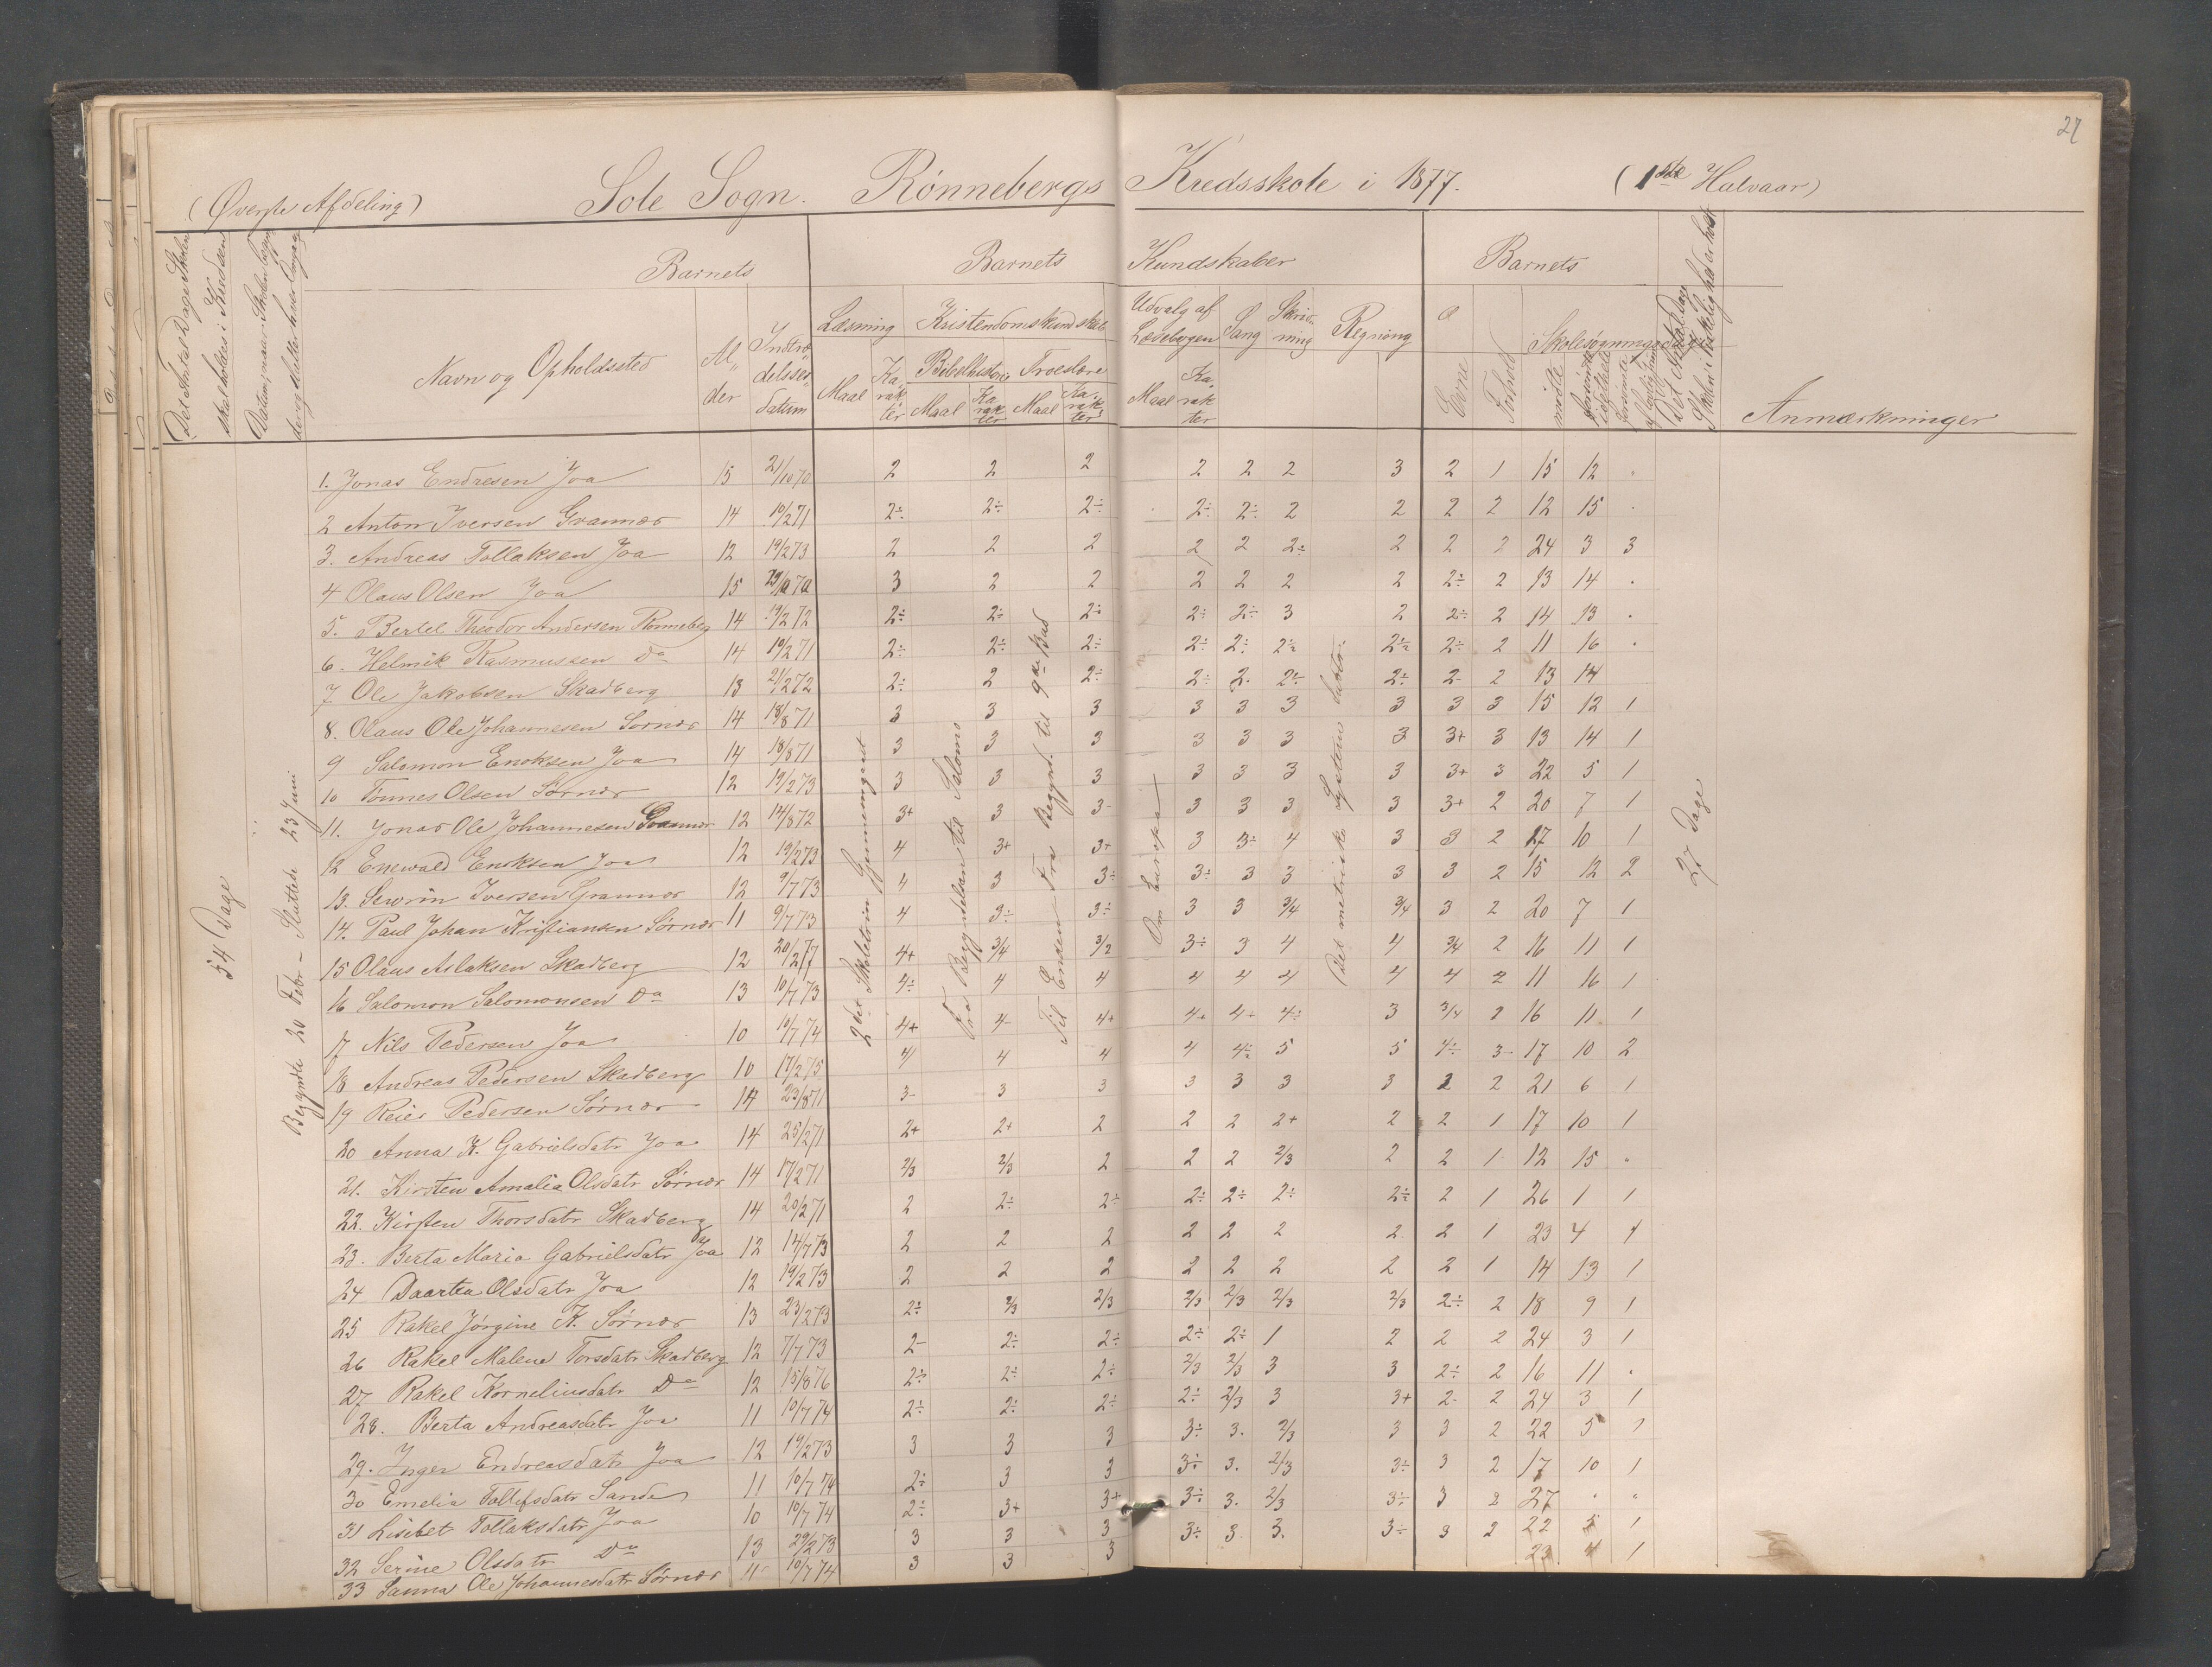 27
(Øverste Afdeling) Sole Sogn. Rønnebergs Kredsskole i 1877. (1ste Halvaar)
Det Antal Dage Skolen skal holdes i Kredsen
Datum, naar Skolen begyndte og slutter hver Omgang
Barnets Barnets Kundskaber Barnets
Navn og Opholdssted Alder Indtrædelsesdatum
Læsning Kristendomskundskab Udvalg af Læsebogen Sang Skrivning Regning Evne Forhold Skolesøgningsdage
Bibelhistorie Troeslære
Maal Karakter Maal Karakter Maal Karakter Maal Karakter
mødte forsømte i det hele forsømte af lovlig Grund
Det Antal Dage Skolen i Virkelighed er holdt
Anmærkninger
54 Dage
Begyndte 20 Febr – Sluttede 23 Juni
2det Skoletrin gjennemgaaet
Fra Begyndelsen til Salomo
Til Enden. Fra Begynd. til 9de Bud
Om Europa
Det metriske System
27 Dage
1. Jonas Endresen Joa 15 21/10 70 2 2 2 2 2 2 3 2 1 15 12 .
2 Anton Iversen Grannæs 14 10/2 71 2÷ 2÷ 2÷ 2÷ 2÷ 2 2 2 2 12 15 .
3. Andreas Tollaksen Joa 12 19/2 73 2 2 2 2 2 2÷ 2 2 2 24 3 3
4 Olaus Olsen Joa 15 3 2 2 2 2 2 2 2÷ 2 13 14 .
5. Bertel Theodor Andersen Rønneberg 14 19/2 72 2÷ 2÷ 2÷ 2÷ 2÷ 3 2 2÷ 2 14 13 .
6. Helmik Rasmussen Do 14 19/2 71 2÷ 2÷ 2÷ 2÷ 2÷ 2÷ 2÷ 2÷ 2 11 16 .
7 Ole Jakobsen Skadberg 13 21/2 72 2÷ 2 2÷ 2÷ 2. 2÷ 2÷ 2- 2 13 14
8. Olaus Ole Johannesen Sørnæs 14 18/8 71 3 3 3 3 3 3 3 3 3 15 12 1
9 Salomon Enoksen Joa 14 18/8 71 3 3 3 3 3 3 3 3+ 3 13 14 1
10 Tønnes Olsen Sørnæs 12 19/2 73 3 3 3 3 3 3 3 3+ 3 22 5 1
11. Jonas Ole Johannesen Grannæs 12 14/8 72 3+ 3 3- 3 3 3 3 3+ 2 20 7 1
12 Enewald Enoksen Joa 12 19/2 73 4 3+ 3+ 3 3÷ 4 3 3 2 17 10 1
13. Sewrin Iversen Grannæs 12 9/7 73 4 3 3÷ 3÷ 3 3 3 3 2 15 12 2
14. Paul Johan Kristiansen Sørnæs 11 9/7 73 4 3÷ 3÷ 3 3 3/4 3/4 3 2 20 7 1
15 Olaus Aslaksen Skadberg 12 20/2 77 4+ 3/4 3/2 3÷ 3 4 4 3/4 2 16 11 1
16 Salomon Salomonsen Do 13 10/7 73 4÷ 4 4 4 4 4 4 4 2 11 16 1
17 Nils Pedersen Joa 10 10/7 74 4+ 4- 4+ 4+ 4+ 4÷ 3 3/4 2 16 11 1
18 Andreas Pedersen Skadberg 10 17/2 75 4 4 4 4 4÷ 5 5 4÷ 3- 17 10 2
19 Reier Pedersen Sørnæs 14 23/8 71 3- 3 3 3 3 3 3 2 2 21 6 1
20 Anna K. Gabrielsdatr Joa 14 25/2 71 2+ 2+ 2 2 2 2+ 2 2 1 17 10 1
21. Kirsten Amalia Olsdatr Sørnæs 14 17/2 71 2/3 2/3 2 2 2 2/3 2 2 1 12 15 .
22. Kirsten Thorsdatr Skadberg 14 20/2 71 2 2÷ 2÷ 2÷ 2÷ 2÷ 2÷ 2 1 26 1 1
23. Berta Maria Gabrielsdatr Joa 12 14/7 73 2 2 2 2 2 2 2 2 1 23 4 1
24 Daartea Olsdatr Joa 12 19/2 73 2 2 2 2 2 2 2 2 1 14 13 1
25 Rakel Jørgine K. Sørnæs 13 23/2 73 2÷ 2/3 2/3 2/3 2/3 2/3 2/3 2÷ 2 18 9 1
26 Rakel Malene Torsdatr Skadberg 12 7/7 73 2- 2÷ 2÷ 2÷ 2÷ 1 2 2 2 24 3 1
27 Rakel Korneliusdatr Do 12 15/8 76 2÷ 2÷ 2÷ 2/3 2/3 3 3 2÷ 2 16 11 .
28. Berta Andreasdatr Joa 11 10/7 74 2÷ 2÷ 2÷ 2÷ 2/3 3 3+ 2- 2 24 3 1
29. Inger Endreasdatr Joa 12 19/2 73 3 3 3 3÷ 3. 2/3 3 3 2 22 5 1
30 Emelia Tollefsdatr Sande 11 10/7 74 2÷ 3 3 3÷ 3. 2/3 3÷ 3 2 17 10 1
31 Lisibet Tollaksdatr Joa 10 10/7 74 2÷ 3+ 3+ 3÷ 3. 2/3 3÷ 3 2 27 . .
32 Serine Olsdatr Do 13 29/2 73 3 3 3 3÷ 3. 3. 3÷ 3 2 22 5 1
33 Sanna Ole Johannesdatr Sørnæs 11 10/7 74 3 3 3 23 4 1